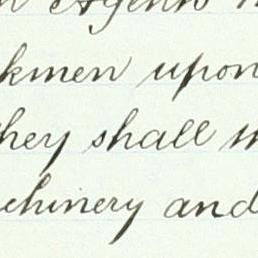 Agents
kmen upon
hey shall
chinery and